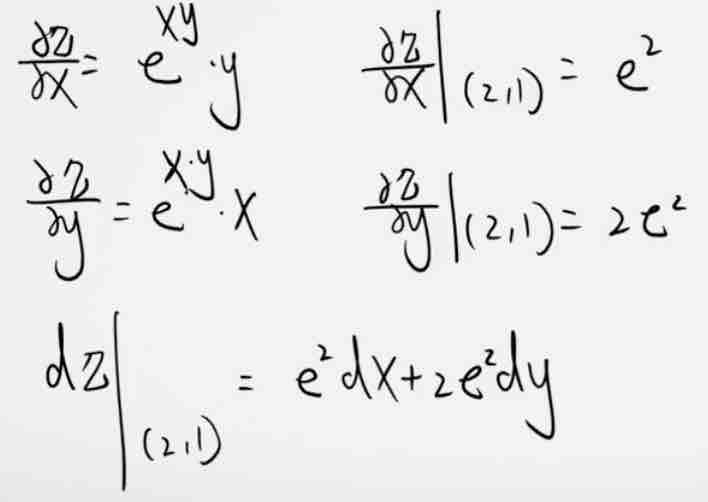 ∂z/∂x = e^{xy}·y    ∂z/∂x |_(2,1) = e^2
∂z/∂y = e^{x·y}·x    ∂z/∂y |_(2,1) = 2e^2
dz |_(2,1) = e^2dx+2e^2dy